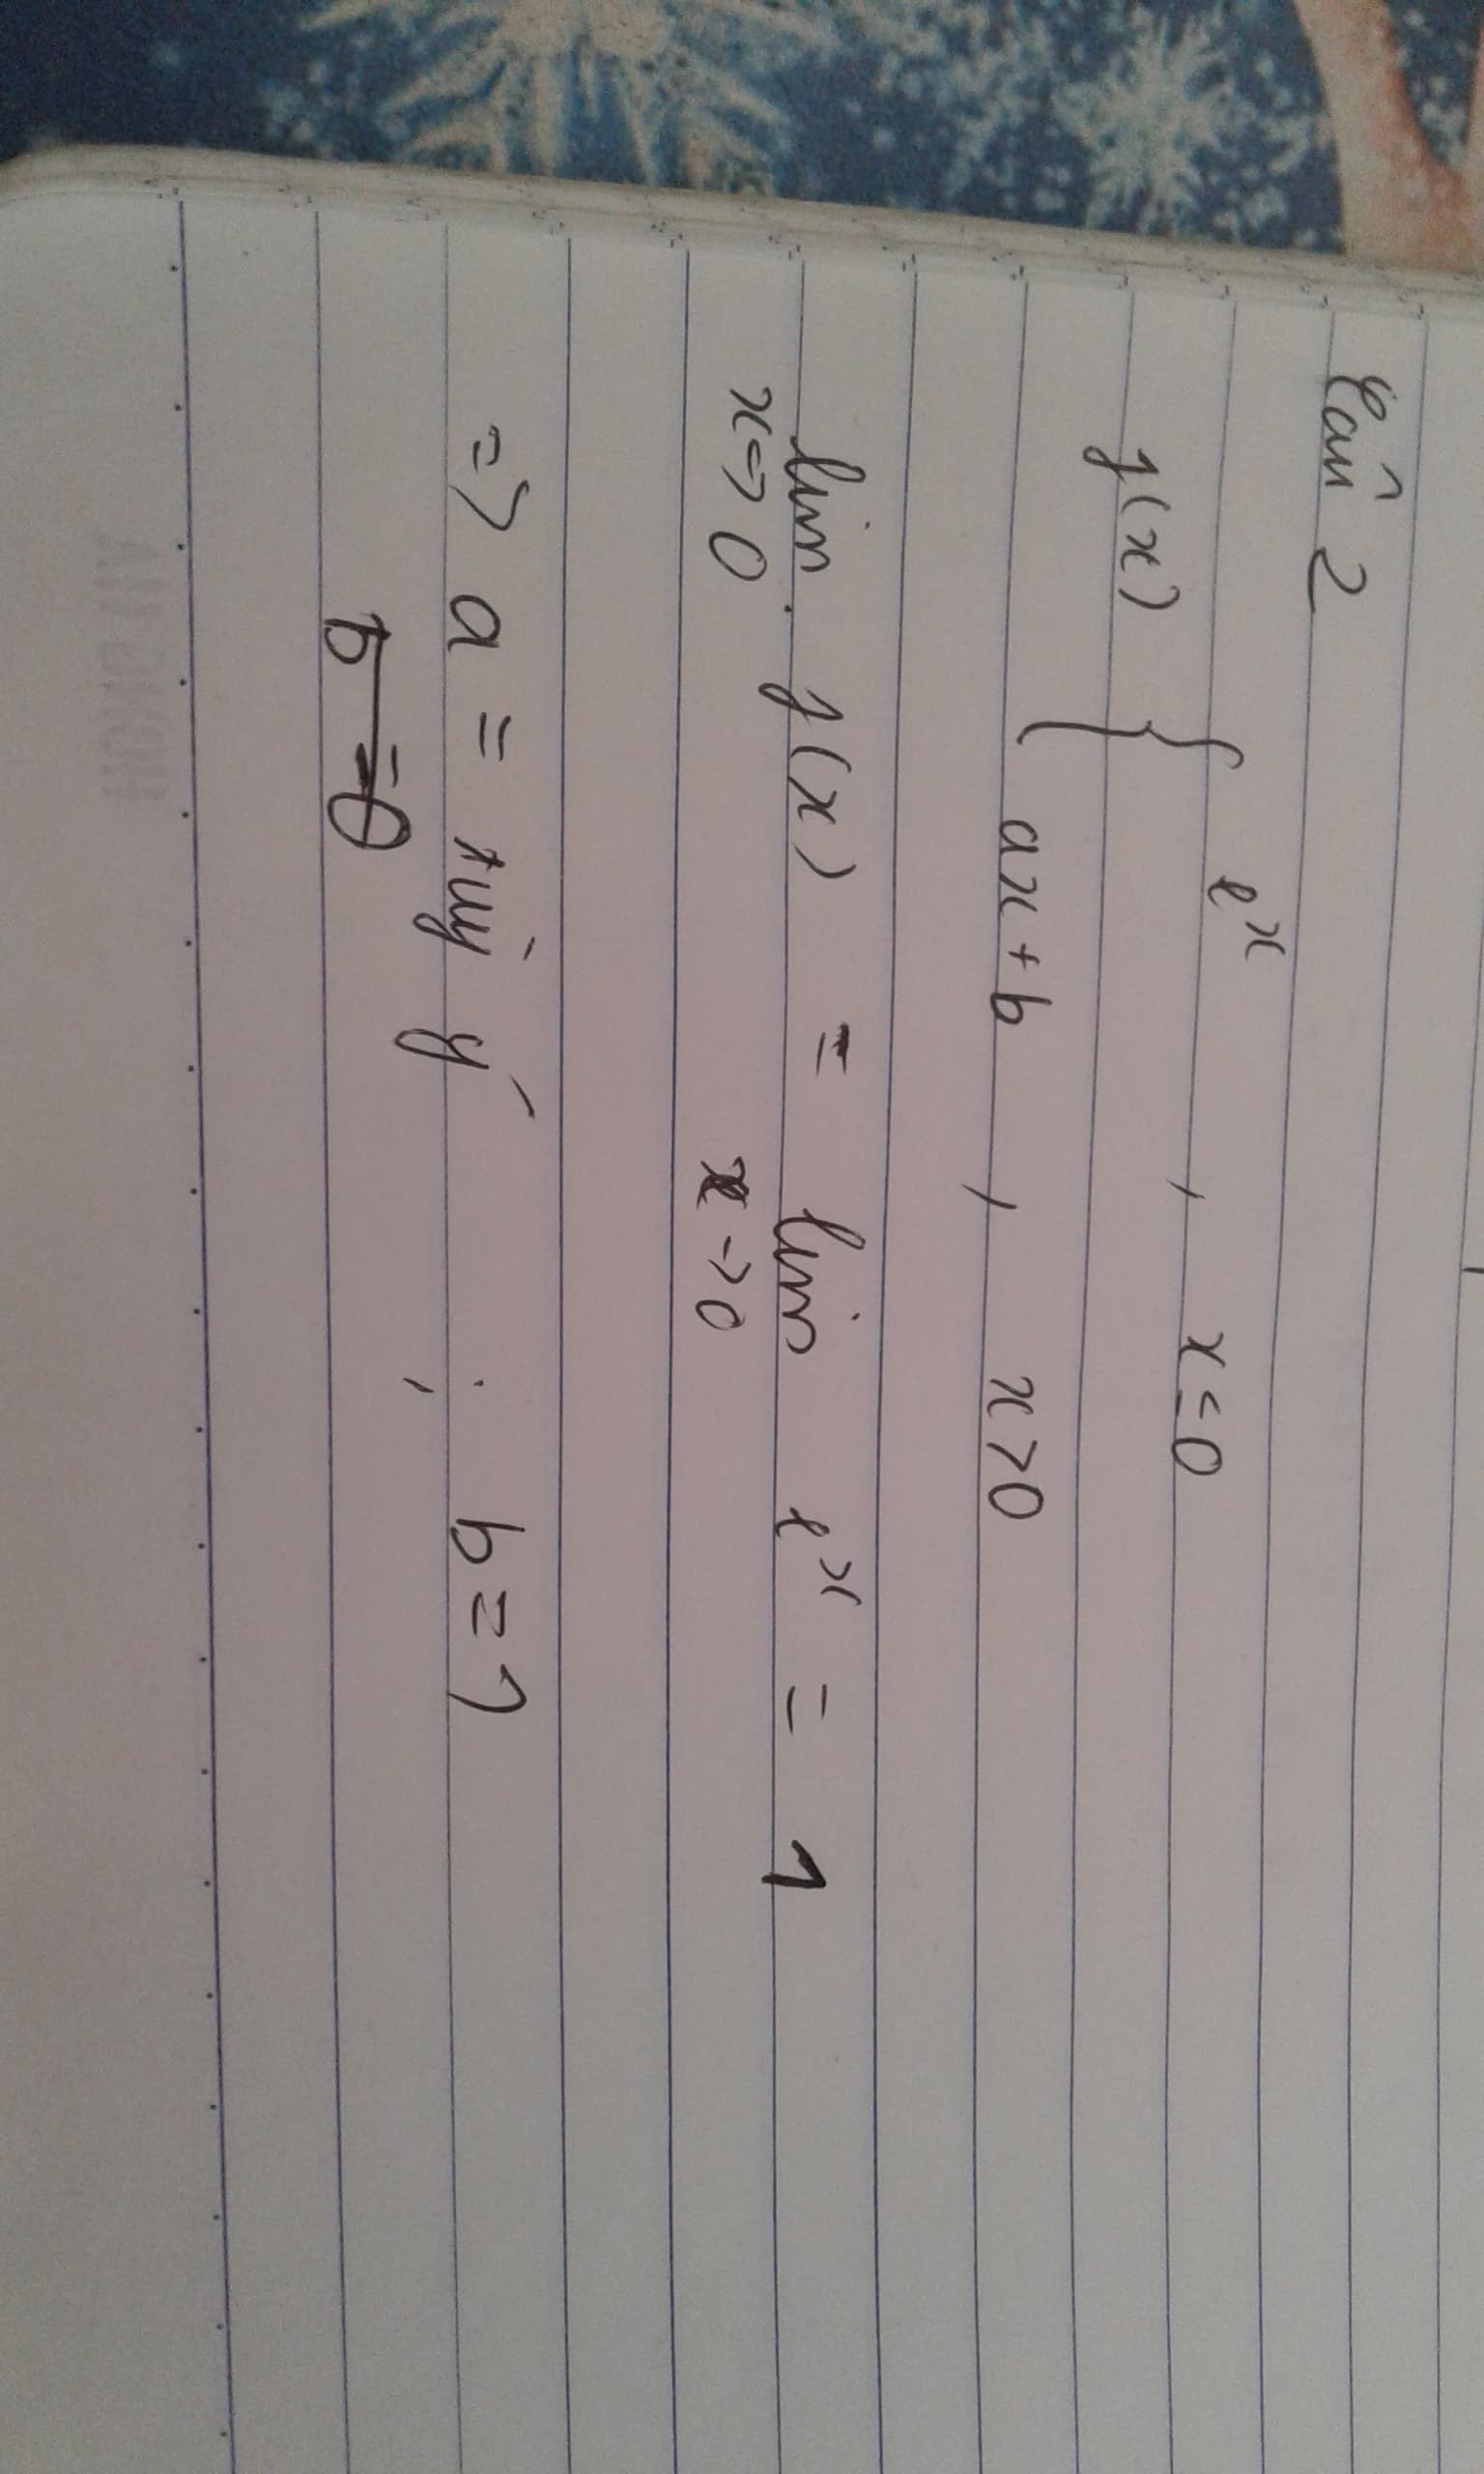 Câu 2
f(x) { e^x , x ≤ 0
ax + b , x > 0
lim x→0 f(x) = lim x→0 e^x = 1
=> a = tuỳ ý ; b = 1
b = 0
HONG HA